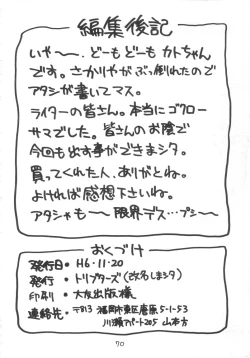 編集後記
いや〜〜、どーもどーもカトちゃん
です。さかりやがぶっ倒れたので
アタシが書いてマス。
ライターの皆さん。本当にゴクロー
サマでした。皆さんのお陰で
今回も出す事ができまシタ。
買ってくれた人、ありがとね。
よければ感想下さいね。
アタシャも〜〜限界デス…プシ〜〜
おくづけ
発行日・H6・11・20
発行・トリプターズ(改名しまシタ)
印刷・大友出版様
連絡先・〒813 福岡市東区唐原5-1-53
川瀬アパート205 山本方
70